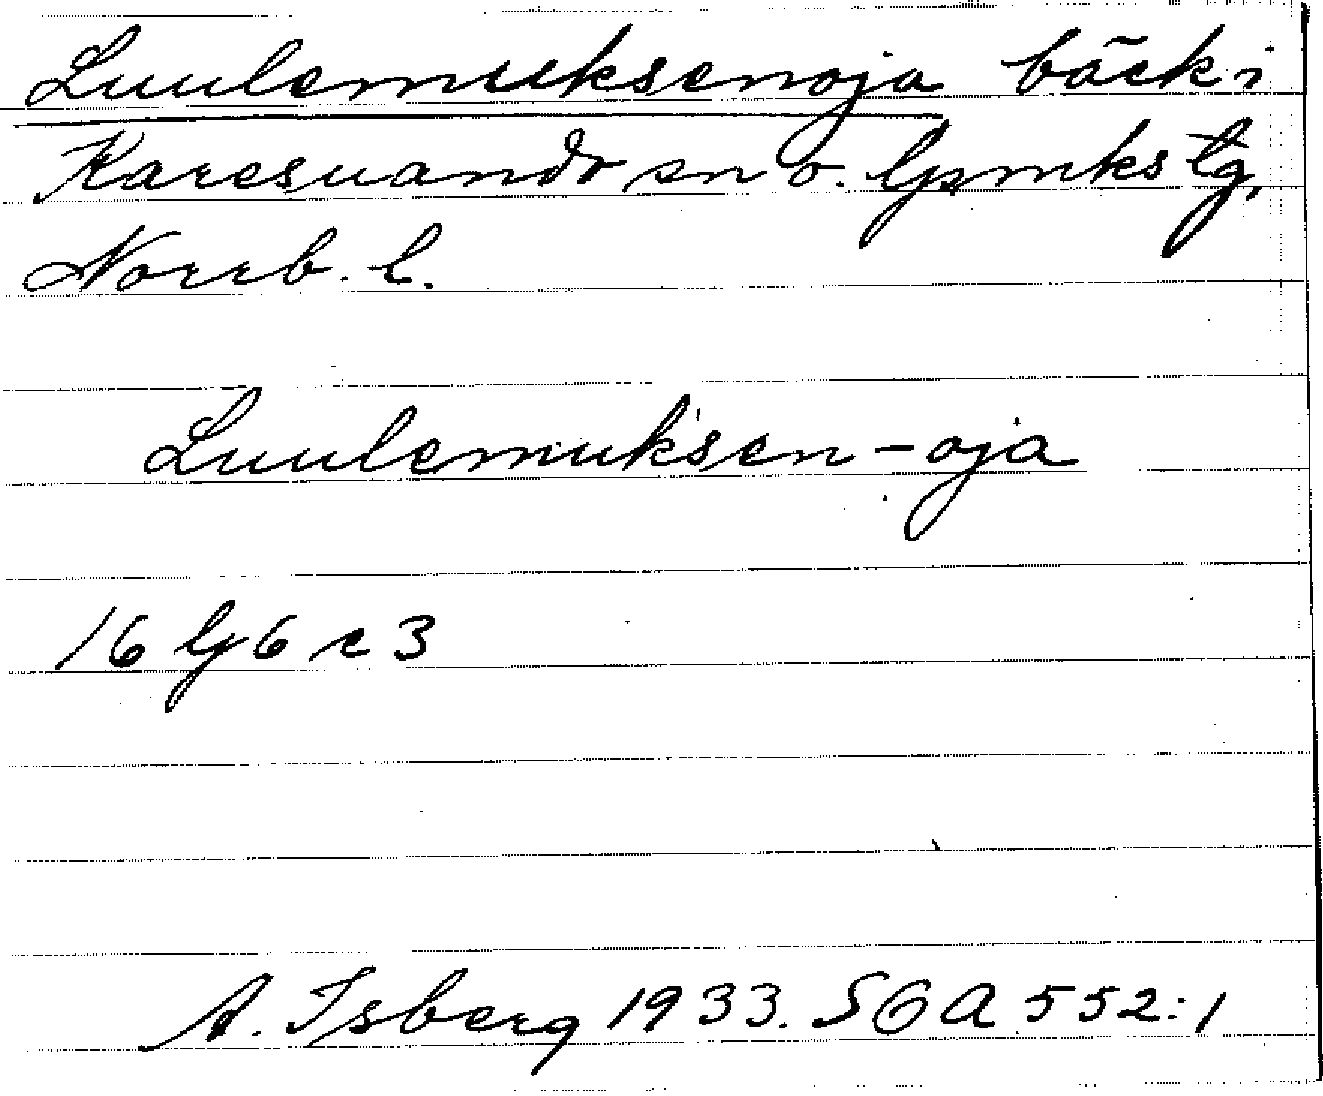 Luulemuksenoja bäck i
Karesuando sn o. lpmks tg,
Norrb. l.
Luulemuk'sen-oja
16 lj 6 r 3
A. Isberg 1933. SOA 552:1